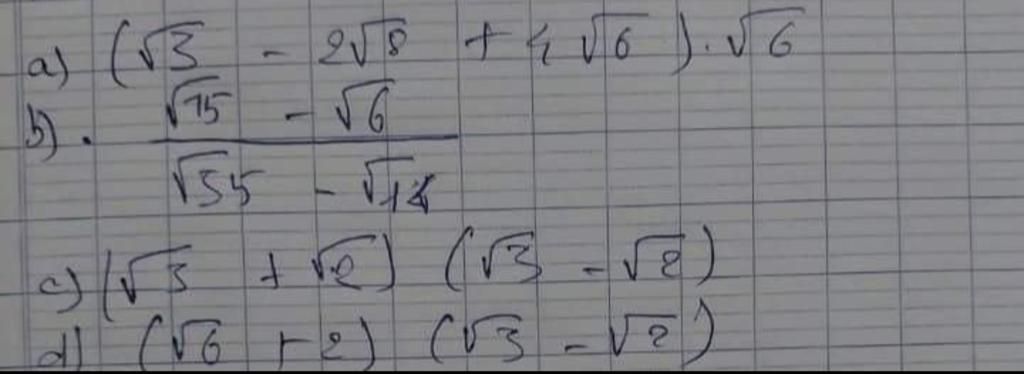 a) (√3 - 2√8 + 4√6).√6
b). (√15 - √6) / (√35 - √14)
c) (√3 + √2) (√3 - √2)
d) (√6 + 2) (√3 - √2)